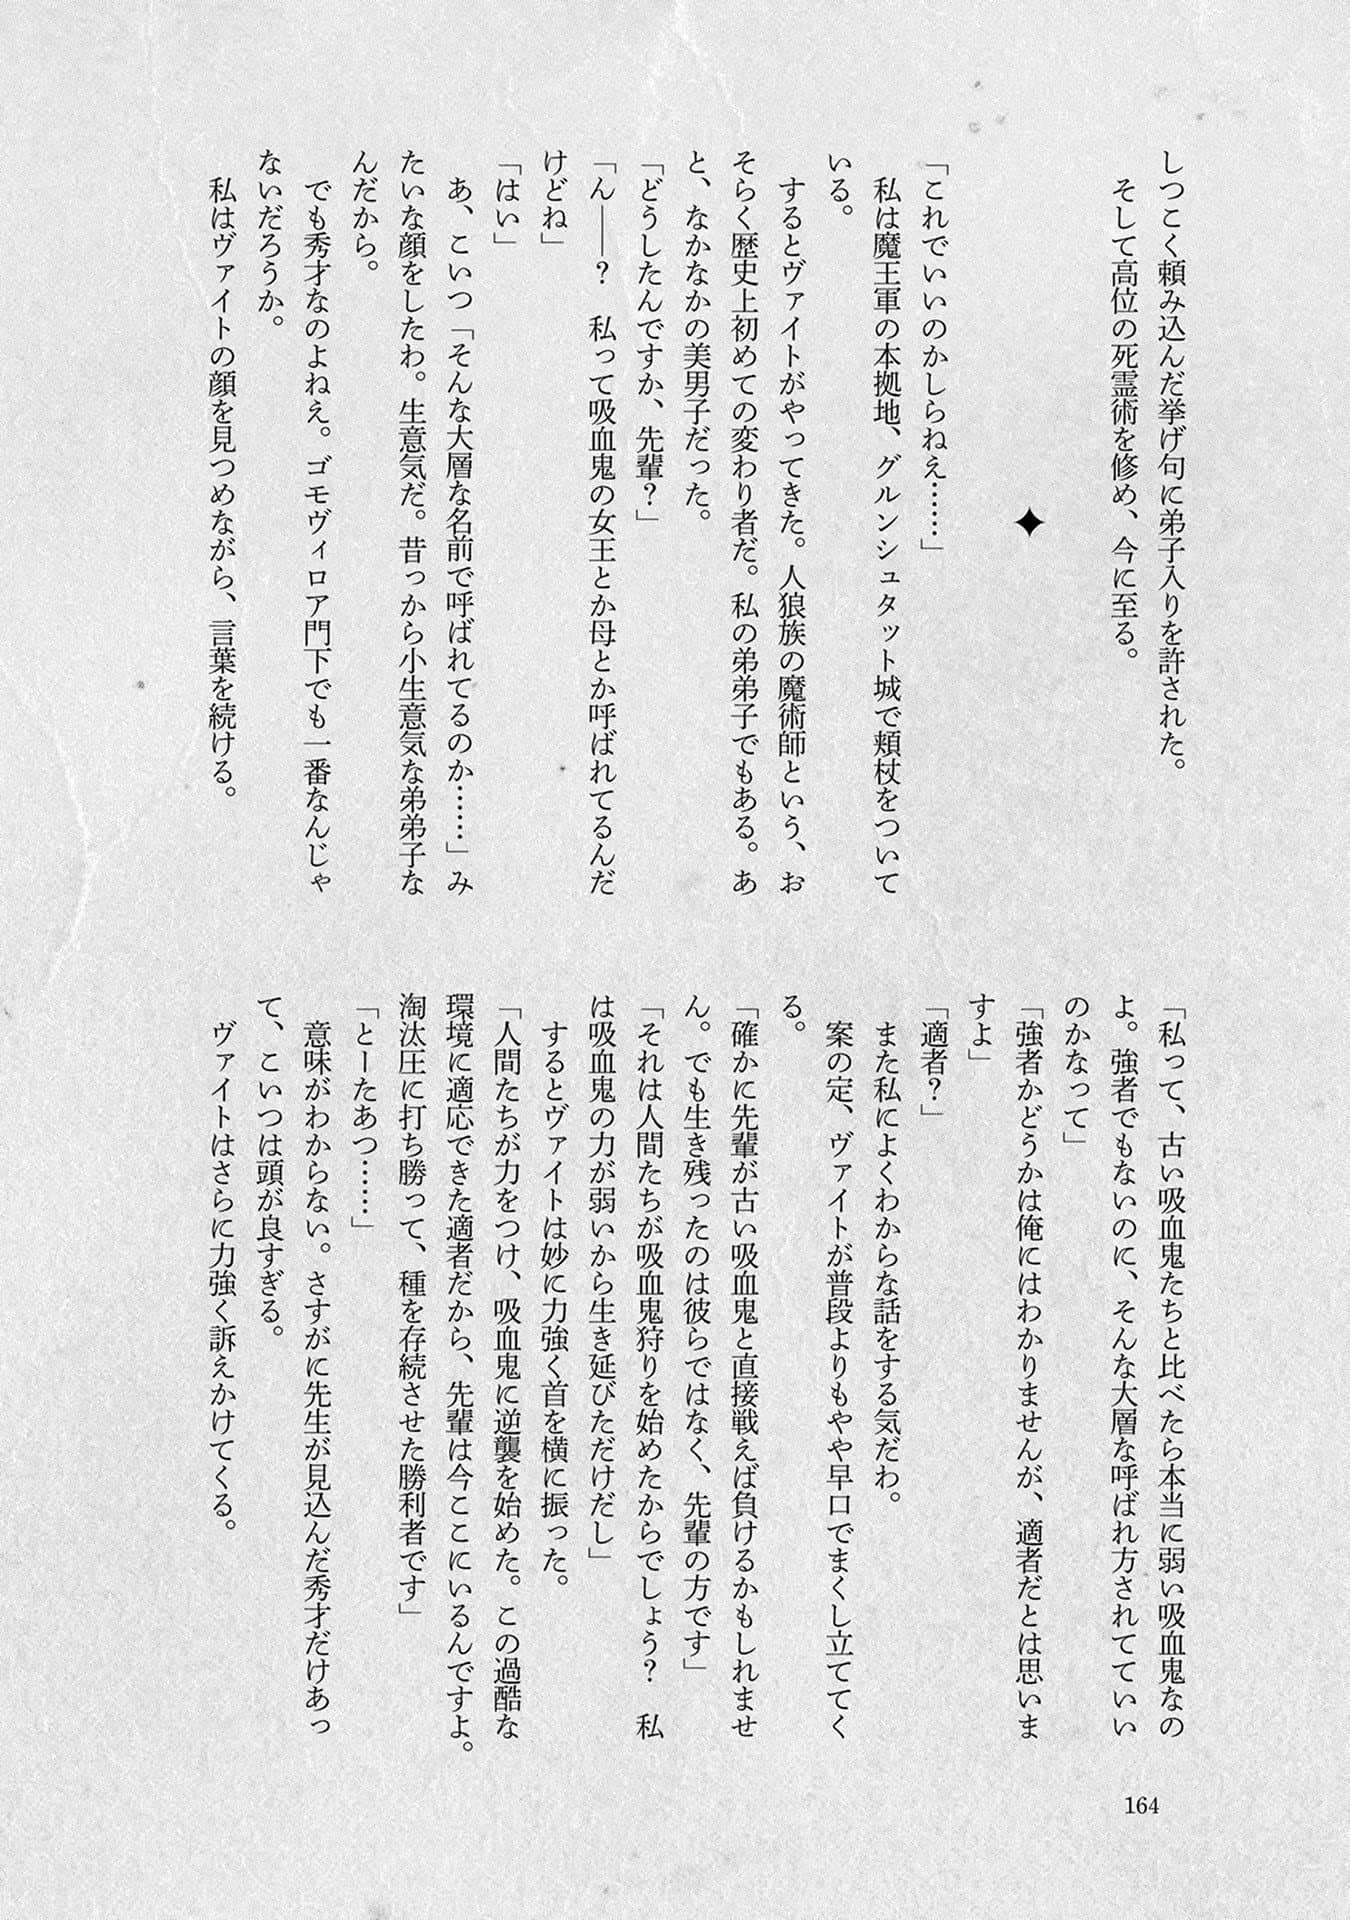 しつこく頼み込んだ挙げ句に弟子入りを許された。
そして高位の死霊術を修め、今に至る。
✦
「これでいいのかしらねえ……」
私は魔王軍の本拠地、グルンシュタット城で頬杖をついて
いる。
するとヴァイトがやってきた。人狼族の魔術師という、お
そらく歴史上初めての変わり者だ。私の弟弟子でもある。あ
と、なかなかの美男子だった。
「どうしたんですか、先輩？」
「ん――？　私って吸血鬼の女王とか母とか呼ばれてるんだ
けどね」
「はい」
あ、こいつ「そんな大層な名前で呼ばれてるのか……」み
たいな顔をしたわ。生意気だ。昔っから小生意気な弟弟子な
んだから。
でも秀才なのよねえ。ゴモヴィロア門下でも一番なんじゃ
ないだろうか。
私はヴァイトの顔を見つめながら、言葉を続ける。
「私って、古い吸血鬼たちと比べたら本当に弱い吸血鬼なの
よ。強者でもないのに、そんな大層な呼ばれ方されてていい
のかなって」
「強者かどうかは俺にはわかりませんが、適者だとは思いま
すよ」
「適者？」
また私によくわからな話をする気だわ。
案の定、ヴァイトが普段よりもやや早口でまくし立ててく
る。
「確かに先輩が古い吸血鬼と直接戦えば負けるかもしれませ
ん。でも生き残ったのは彼らではなく、先輩の方です」
「それは人間たちが吸血鬼狩りを始めたからでしょう？　私
は吸血鬼の力が弱いから生き延びただけだし」
するとヴァイトは妙に力強く首を横に振った。
「人間たちが力をつけ、吸血鬼に逆襲を始めた。この過酷な
環境に適応できた適者だから、先輩は今ここにいるんですよ。
淘汰圧に打ち勝って、種を存続させた勝利者です」
「とーたあつ……」
意味がわからない。さすがに先生が見込んだ秀才だけあっ
て、こいつは頭が良すぎる。
ヴァイトはさらに力強く訴えかけてくる。
164